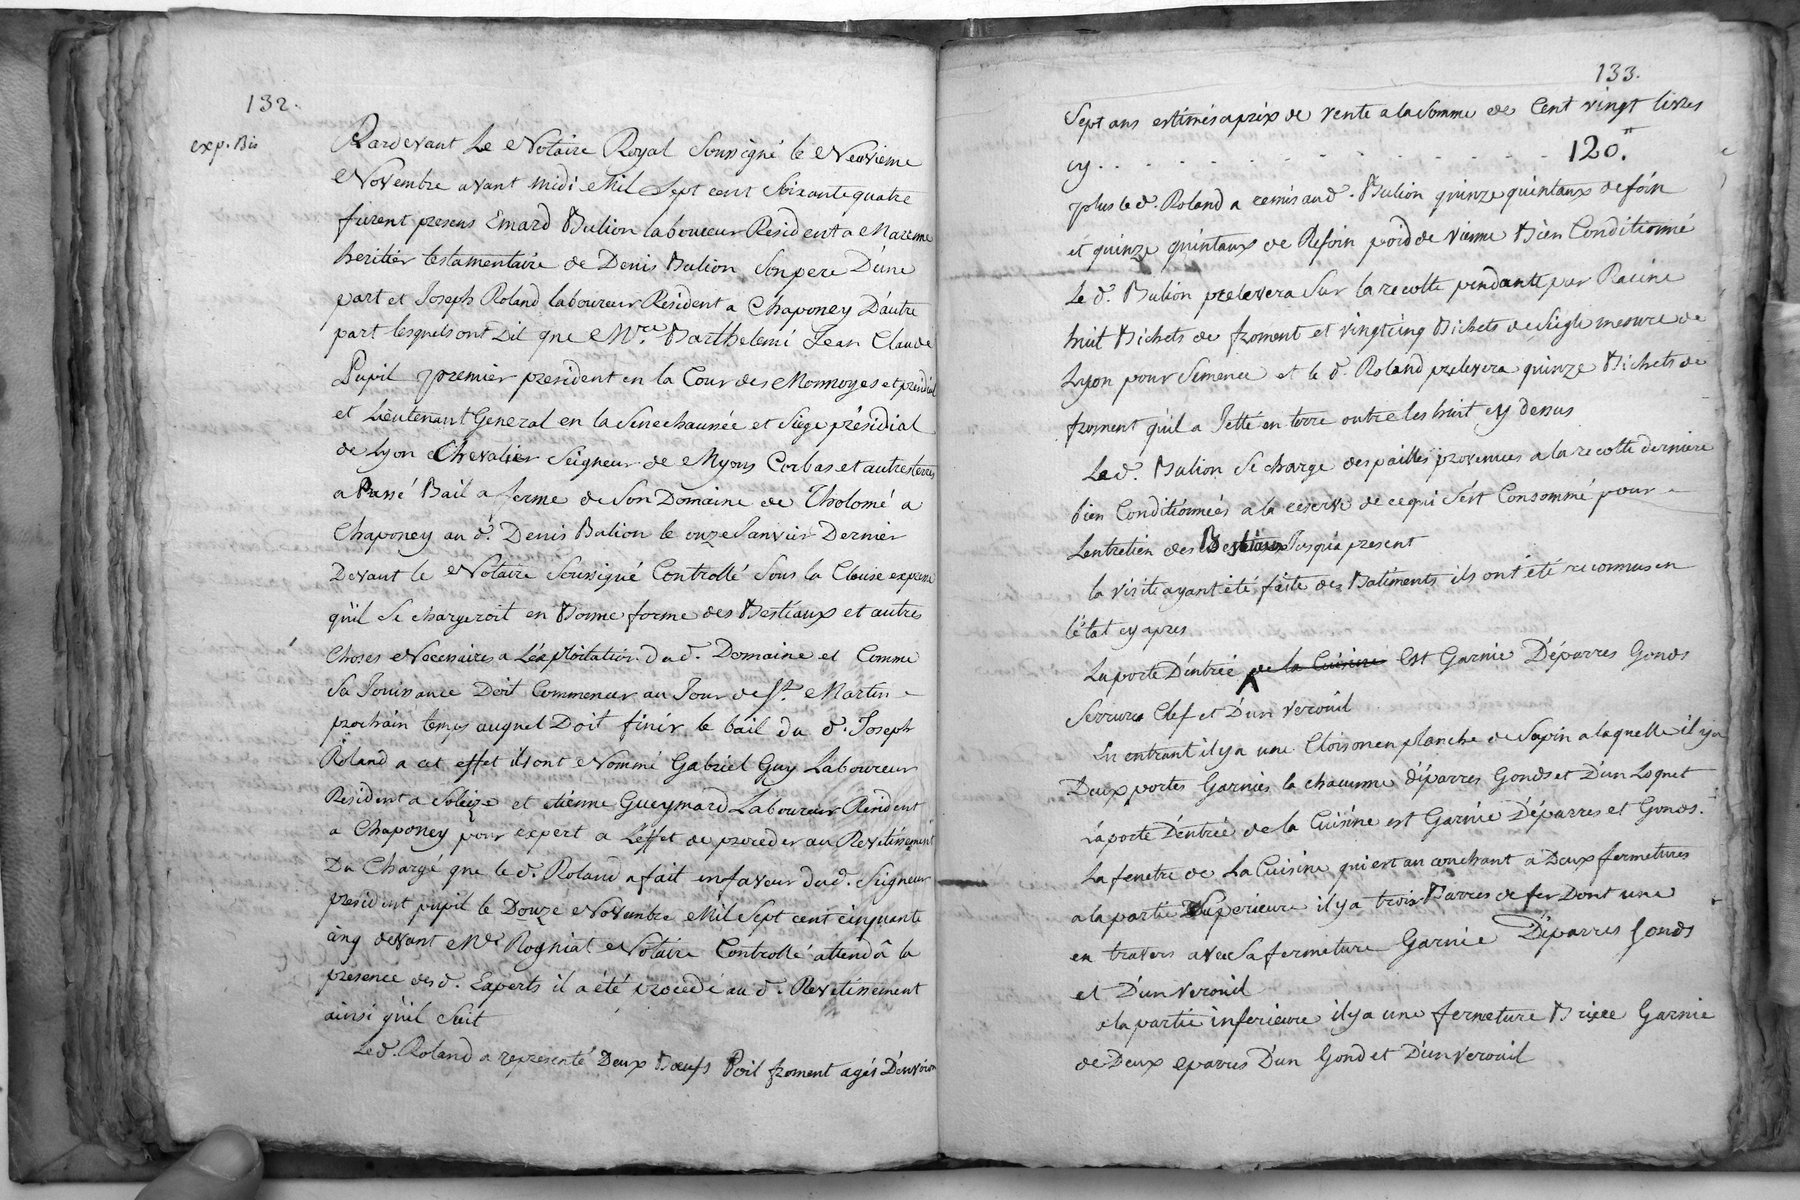 132.
exp. Bis
Pardevant Le Notaire Royal Soussigné le Neuvieme
Novembre avant midi Mil Sept cent Soixante quatre
furent presens Emard Bulion laboureur Resident a Marenne
heritier testamentaire de Denis Bulion Son pere Dune
part et Joseph Roland laboureur Resident a Chaponey D'autre
part lesquels ont Dit que Mre. Barthelemi Jean Claude
Pupil premier president en la Cour des Monnoyes et presidial
et Lieutenant General en la Senechaussée et Siege présidial
de Lyon Chevalier Seigneur de Myons Corbas et autres terres
a Passé Bail a ferme de Son Domaine de Tholomé a
Chaponey au d. Denis Bulion le onze Janvier Dernier
Devant le Notaire Soussigné Controllé Sous la Clause expresse
qu'il Se chargeroit en Bonne forme des Bestiaux et autres
Choses Necessaires a L'éxploitation du d. Domaine et Comme
Sa Jouissance Doit Commencer au Jour de St Martin
prochain tems auquel Doit finir le bail du d. Joseph
Roland a cet effet ils ont Nommé Gabriel Guy Laboureur
Resident a Soleize et etienne Gueymard Laboureur Resident
a Chaponey pour expert a L'effet de proceder au Revetissement
Du Chargé que le d. Roland a fait en faveur dud. Seigneur
president pupil le Douze Novembre Mil Sept cent cinquante
cinq devant Me Rogniat Notaire Controllé attendû la
presence des d. Experts il a été procedé au d. Revetissement
ainsi qu'il Suit
Le d. Roland a representé Deux Bœufs Poil froment agés D'environ
133.
Sept ans estimés a prix de vente a la Somme de Cent vingt livres
cy . . . . . . . . . . . . 120.#
plus le d. Roland a remis au d. Bulion quinze quintaux de foin
et quinze quintaux de Refoin poid de vienne Bien Conditionné
Le d. Bulion prelevera Sur la recolte pendante par Racine
huit Bichets de froment et vingt cinq Bichets de Siegle mesure de
Lyon pour Semence et le d. Roland prelevera quinze Bichets de
froment qu'il a Jetté en terre outre les huit cy dessus
Le d. Bulion Se charge des pailles provenues a la recolte derniere
bien Conditionnées a la reserve de ce qui S'est Consommé pour
Lentretien des Bestiaux Jusqu'a present
la visite ayant été faite des Batiments ils ont été reconnus en
l'état cy apres
La porte D'entrée de la Cuisine Est Garnie D'éparres Gonds
Serrure Clef et D'un verouil
En entrant il y a une Cloison en planche de Sapin a laquelle il y a
Deux portes Garnies la chacune d'éparres Gonds et D'un Loquet
La porte D'entrée de la Cuisine est Garnie D'éparres et Gonds.
La fenetre de La Cuisine qui est au couchant a Deux fermetures
a la partie Superieure il y a trois Barres de fer Dont une
en travers avec Sa fermeture Garnie D'éparres Gonds
et D'un verouil
a la partie inferieure il y a une fermeture Brisée Garnie
de Deux eparres D'un Gond et D'un verouil